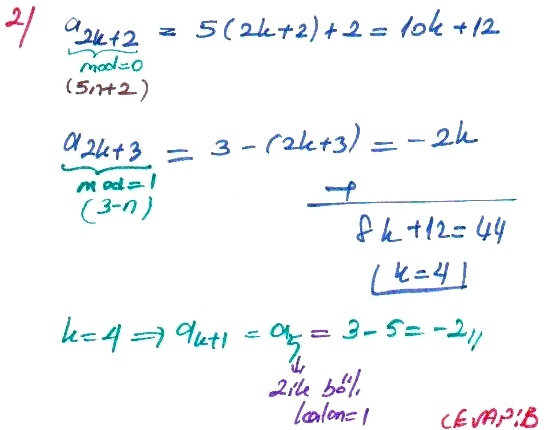 2/ a2k+2 = 5(2k+2)+2 = 10k+12
mod=0
(5n+2)
a2k+3 = 3-(2k+3) = -2k
mod=1
(3-n)
+
8k+12=44
k=4
k=4 ⇒ ak+1 = a5 = 3-5 = -2//
2 ile böl.
kalan=1
CEVAP:B